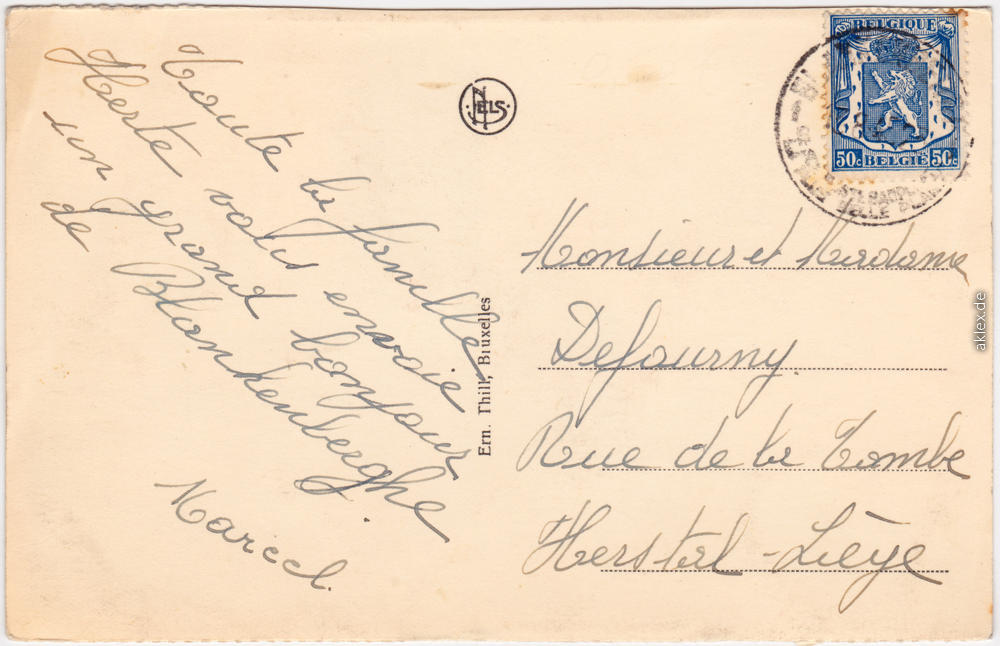 Toute la famille
Herte vous envoie
un grand bonjour
de Blankenberghe.
Marcel.
NELS
Ern. Thill, Bruxelles
BELGIQUE
50c BELGIË 50c
Monsieur et Madame
Defourny.
Rue de la Tombe
Herstal-Liège
aklex.de